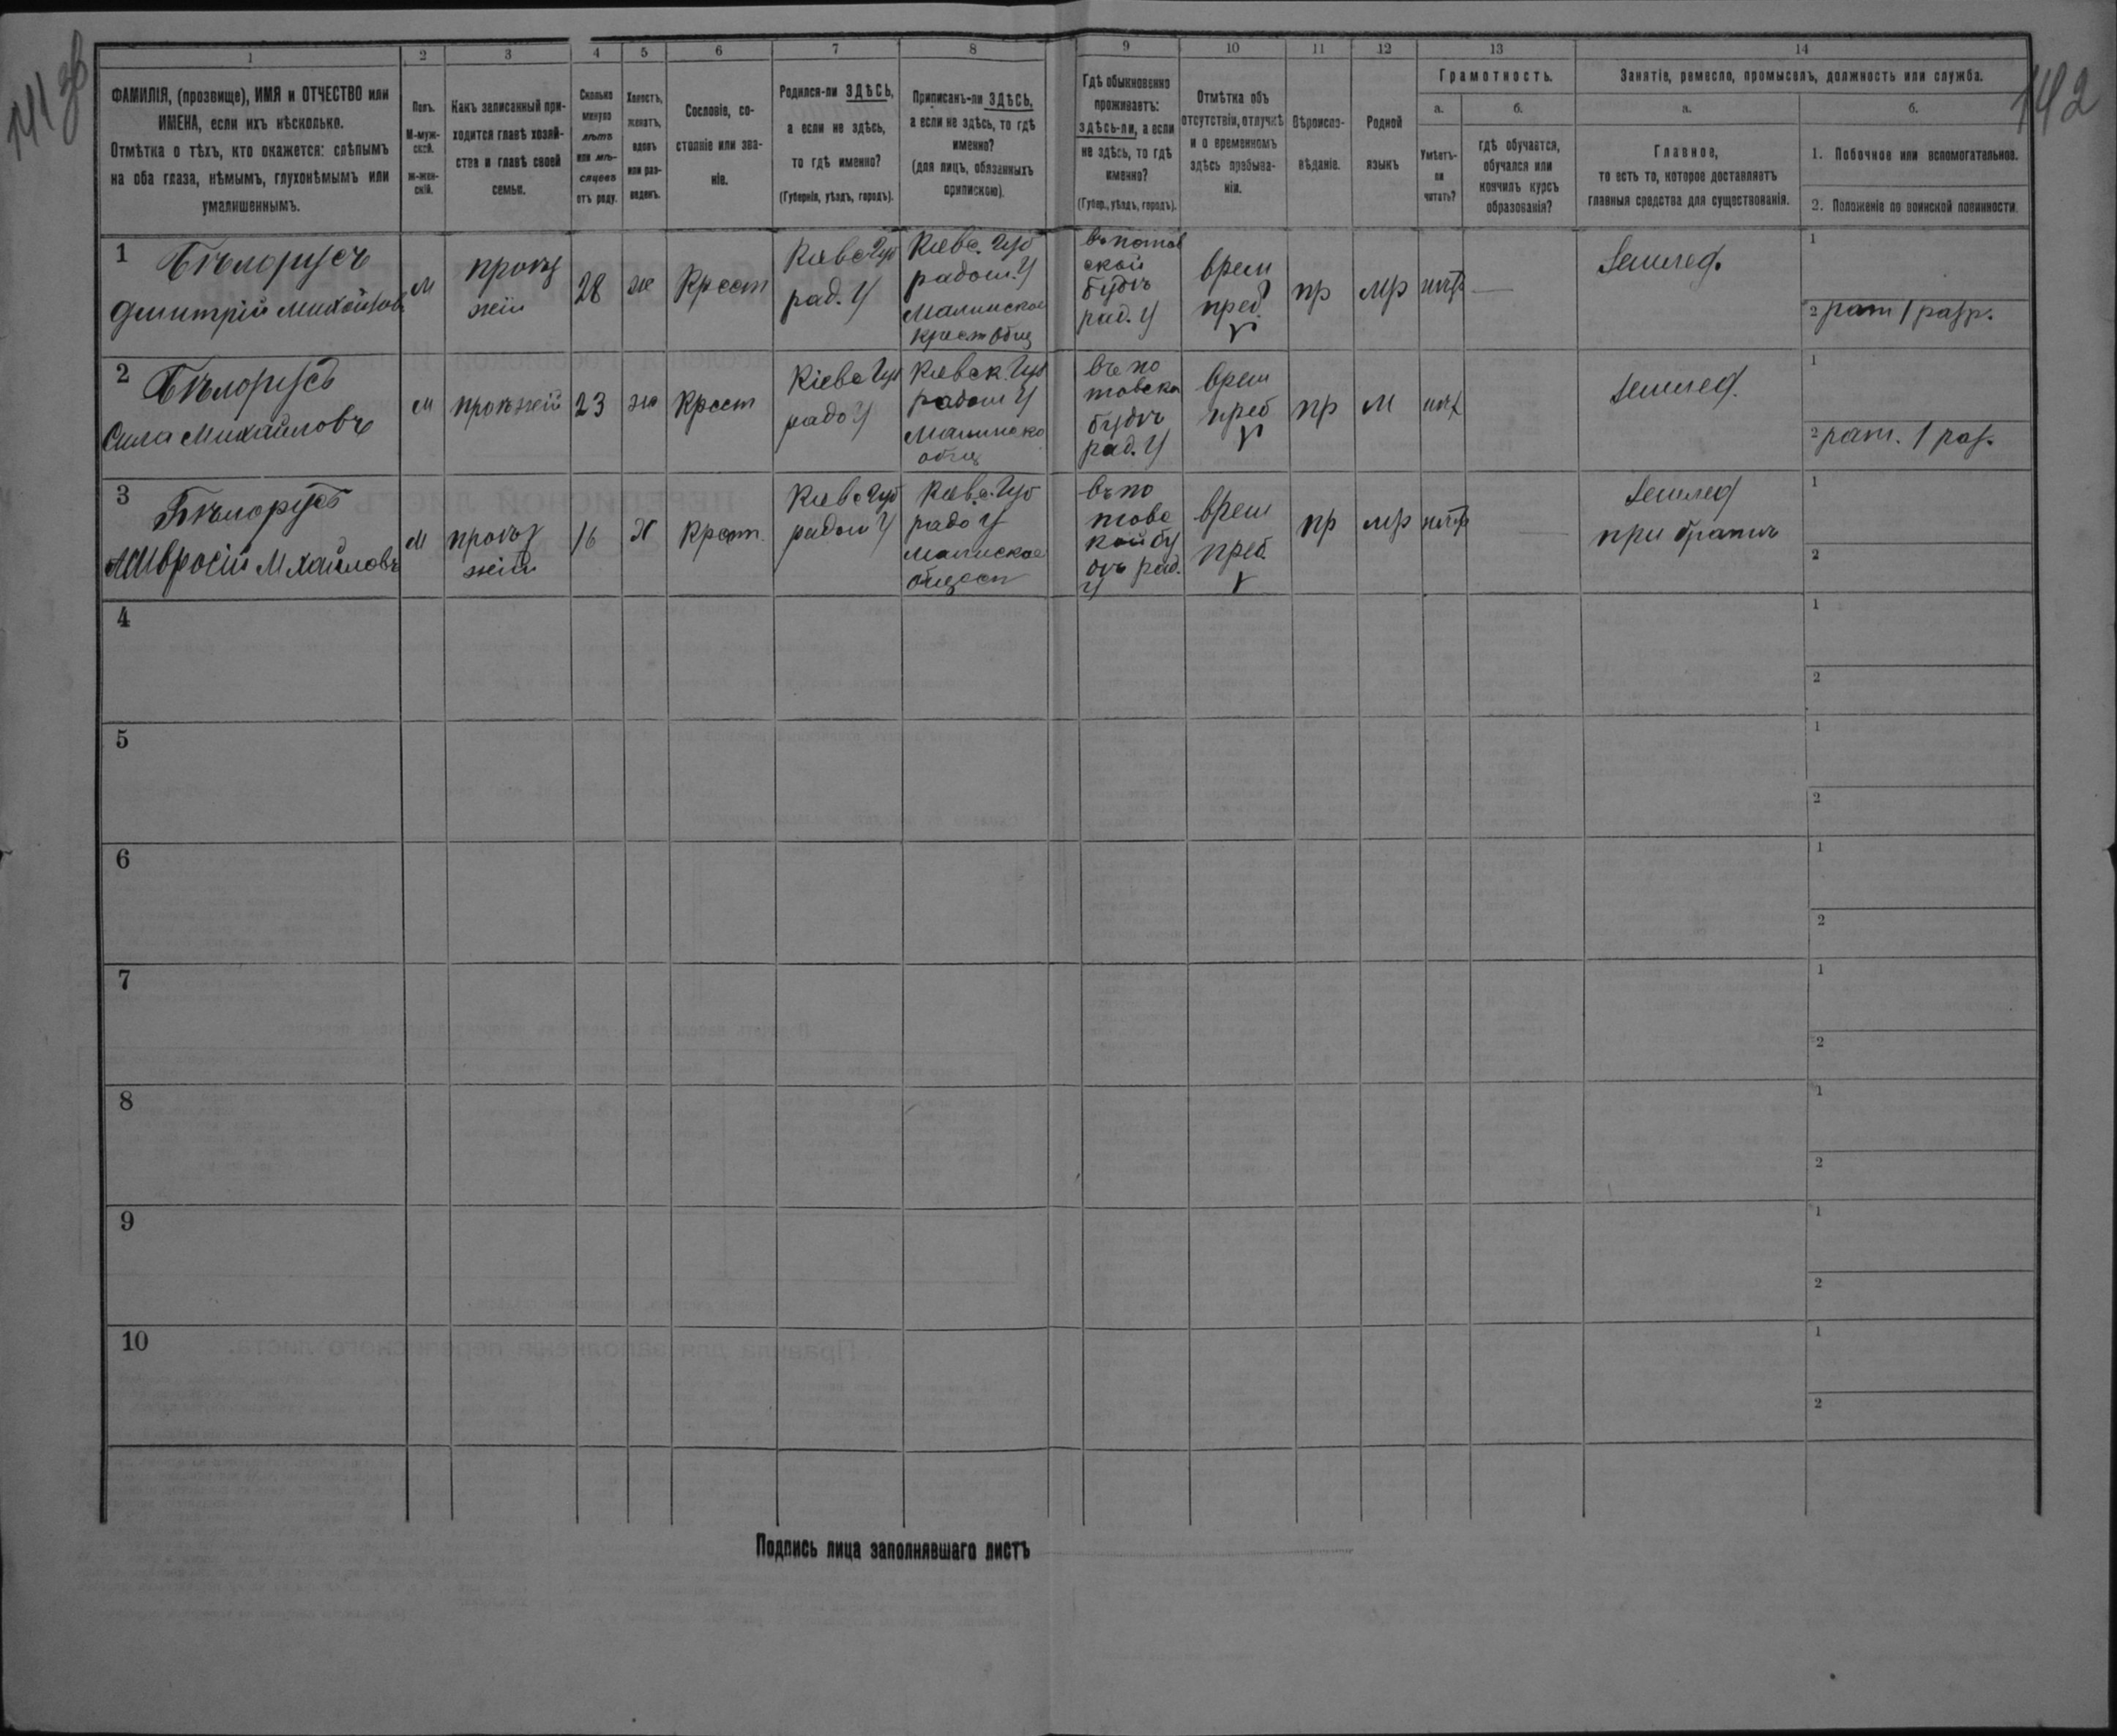 141 об
142
1
2
3
4
5
6
7
8
9
10
11
12
13
14
ФАМИЛІЯ, (прозвище), ИМЯ и ОТЧЕСТВО или
ИМЕНА, если ихъ нѣсколько.
Отмѣтка о тѣхъ, кто окажется: слѣпымъ
на оба глаза, нѣмымъ, глухонѣмымъ или
умалишеннымъ.
Полъ.
М-муж-
ской.
ж-жен-
скій.
Какъ записанный при-
ходится главѣ хозяй-
ства и главѣ своей
семьи.
Сколько
минуло
лѣтъ
или мѣ-
сяцевъ
отъ роду.
Холостъ,
женатъ,
вдовъ
или раз-
веденъ.
Сословіе, со-
стояніе или зва-
ніе.
Родился-ли ЗДѢСЬ,
а если не здѣсь,
то гдѣ именно?
(Губернія, уѣздъ, городъ).
Приписанъ-ли ЗДѢСЬ,
а если не здѣсь, то гдѣ
именно?
(для лицъ, обязанныхъ
припискою).
Гдѣ обыкновенно
проживаетъ:
здѣсь-ли, а если
не здѣсь, то гдѣ
именно?
(Губер., уѣздъ, городъ).
Отмѣтка объ
отсутствіи, отлучкѣ
и о временномъ
здѣсь пребыва-
ніи.
Вѣроиспо-
вѣданіе.
Родной
языкъ
Грамотность.
а.
б.
Умѣетъ-
ли
читать?
гдѣ обучается,
обучался или
кончилъ курсъ
образованія?
Занятіе, ремесло, промыселъ, должность или служба.
а.
б.
Главное,
то есть то, которое доставляетъ
главныя средства для существованія.
1. Побочное или вспомогательное.
2. Положеніе по воинской повинности.
1
Бѣлорусъ
Дмитрій Михайлов
м
проѣз
жій
28
же
Крест
Киев Губ
рад. У
Киев. Губ
радом. У
Малинское
крест общ
въ потов
ской
будѣ
рад. У
врем
преб.
пр
мр
нѣт
—
Землед.
1
2 рат 1 разр.
2
Бѣлорусъ
Сила Михайловъ
м
проѣжій
23
же
Крест
Кіев Губ
радо У
Киевск. Губ
радом У
Малинско
общ
въ по
товско
будѣ
рад. У
врем
преб
пр
м
нѣт
Землед.
1
2 рат. 1 раз.
3
Бѣлорусъ
Амвросій Михайловъ
м
проѣз
жій
16
х
Крест.
Киев Губ
радом У
Киев. Губ
радо У
Малиское
общест
въ по
товс
кой бу
дѣ рад.
У
врем
преб.
пр
мр
нѣт
Землед
при братѣ
1
2
4
1
2
5
1
2
6
1
2
7
1
2
8
1
2
9
1
2
10
1
2
Подпись лица заполнявшаго листъ